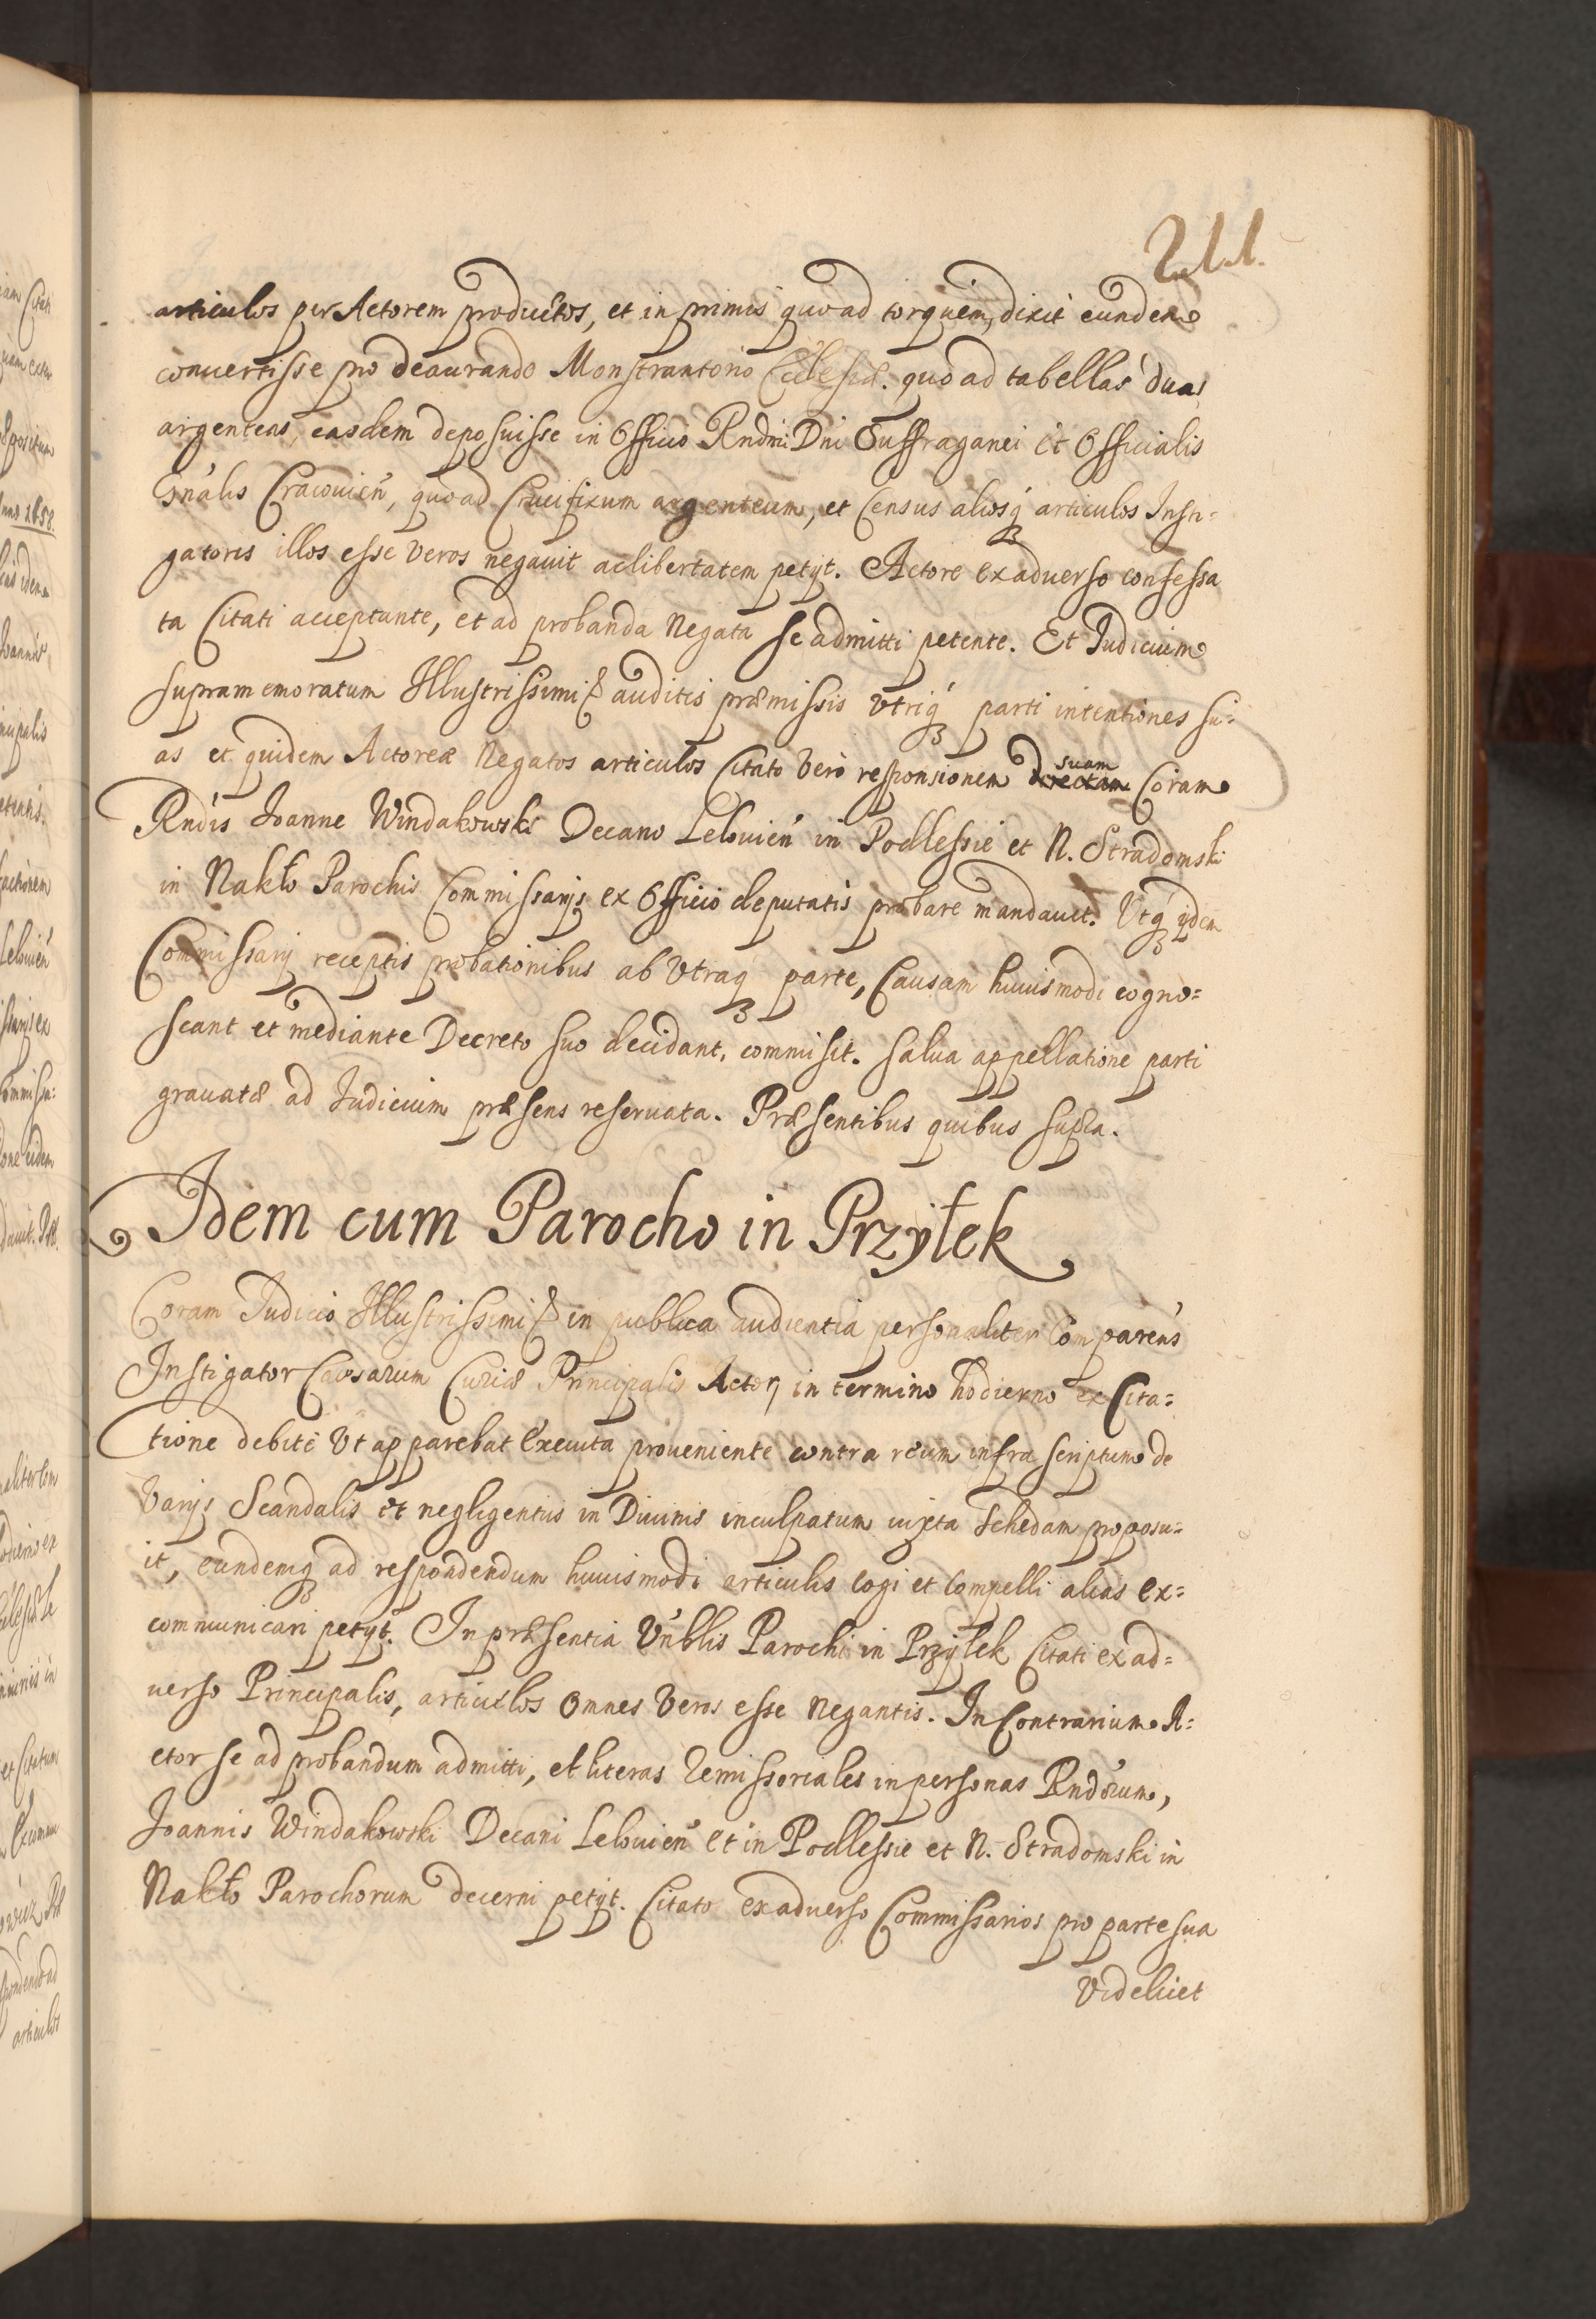 211.
articulos per Actorem productos, et in primis quoad torquem, dixit eundem
conuertisse pro deaurando Monstrantorio Ecclesiæ. quo ad tabellas duas
argenteas, easdem deposuisse in Officio Rndmi Dni Suffraganei et Officialis
Gnalis Cracouien, quoad Crucifixum argenteum, et Census aliosq articulos Insti=
gatoris illos esse veros negauit ac libertatem petyt. Actore ex aduerso confessa
ta Citati acceptante, et ad probanda Negata se admitti petente. Et Iudicium
supramemoratum Illustrissimi auditis præmissis vtriq parti intentiones su=
as et quidem Actoreæ Negatos articulos Citato Vero responsionem directam suam Coram
Rndis Ioanne Windakowski Decano Lelouien in Podlessie et N. Stradomski
in Nakło Parochis Commissarijs ex Officio deputatis probare mandauit. Vtq ijdem
Commissarij receptis probationibus ab Vtraq parte, Causam huiusmodi cogno=
scant et mediante Decreto suo decidant, commisit. salua appellatione parti
grauatæ ad Iudicium præsens reseruata. Præsentibus quibus supra.
Idem cum Parocho in Przyłek
Coram Iudicio Illustrissimi in publica audientia personaliter Comparens
Instigator Causarum Curiæ Principalis Actor, in termino hodierno ex Cita=
tione debite Vt apparebat Executa proueniente contra reum infra scriptum de
Varijs Scandalis et negligentiis in Diuinis inculpatum iuxta Schedam proposu=
it, eundemq ad respondendum huiusmodi articulis cogi et compelli alias ex=
communicari petyt. In præsentia Vnblis Parochi in Przyłek Citati ex ad=
uerso Principalis, articulos omnes Veros esse Negantis. In Contrarium A=
ctor se ad probandum admitti, et literas remissoriales in personas Rndorum,
Ioannis Windakowski Decani Lelouien et in Podlessie et N. Stradomski in
Nakło Parochorum decerni petyt. Citato ex aduerso Commissarios pro parte sua
Videlicet